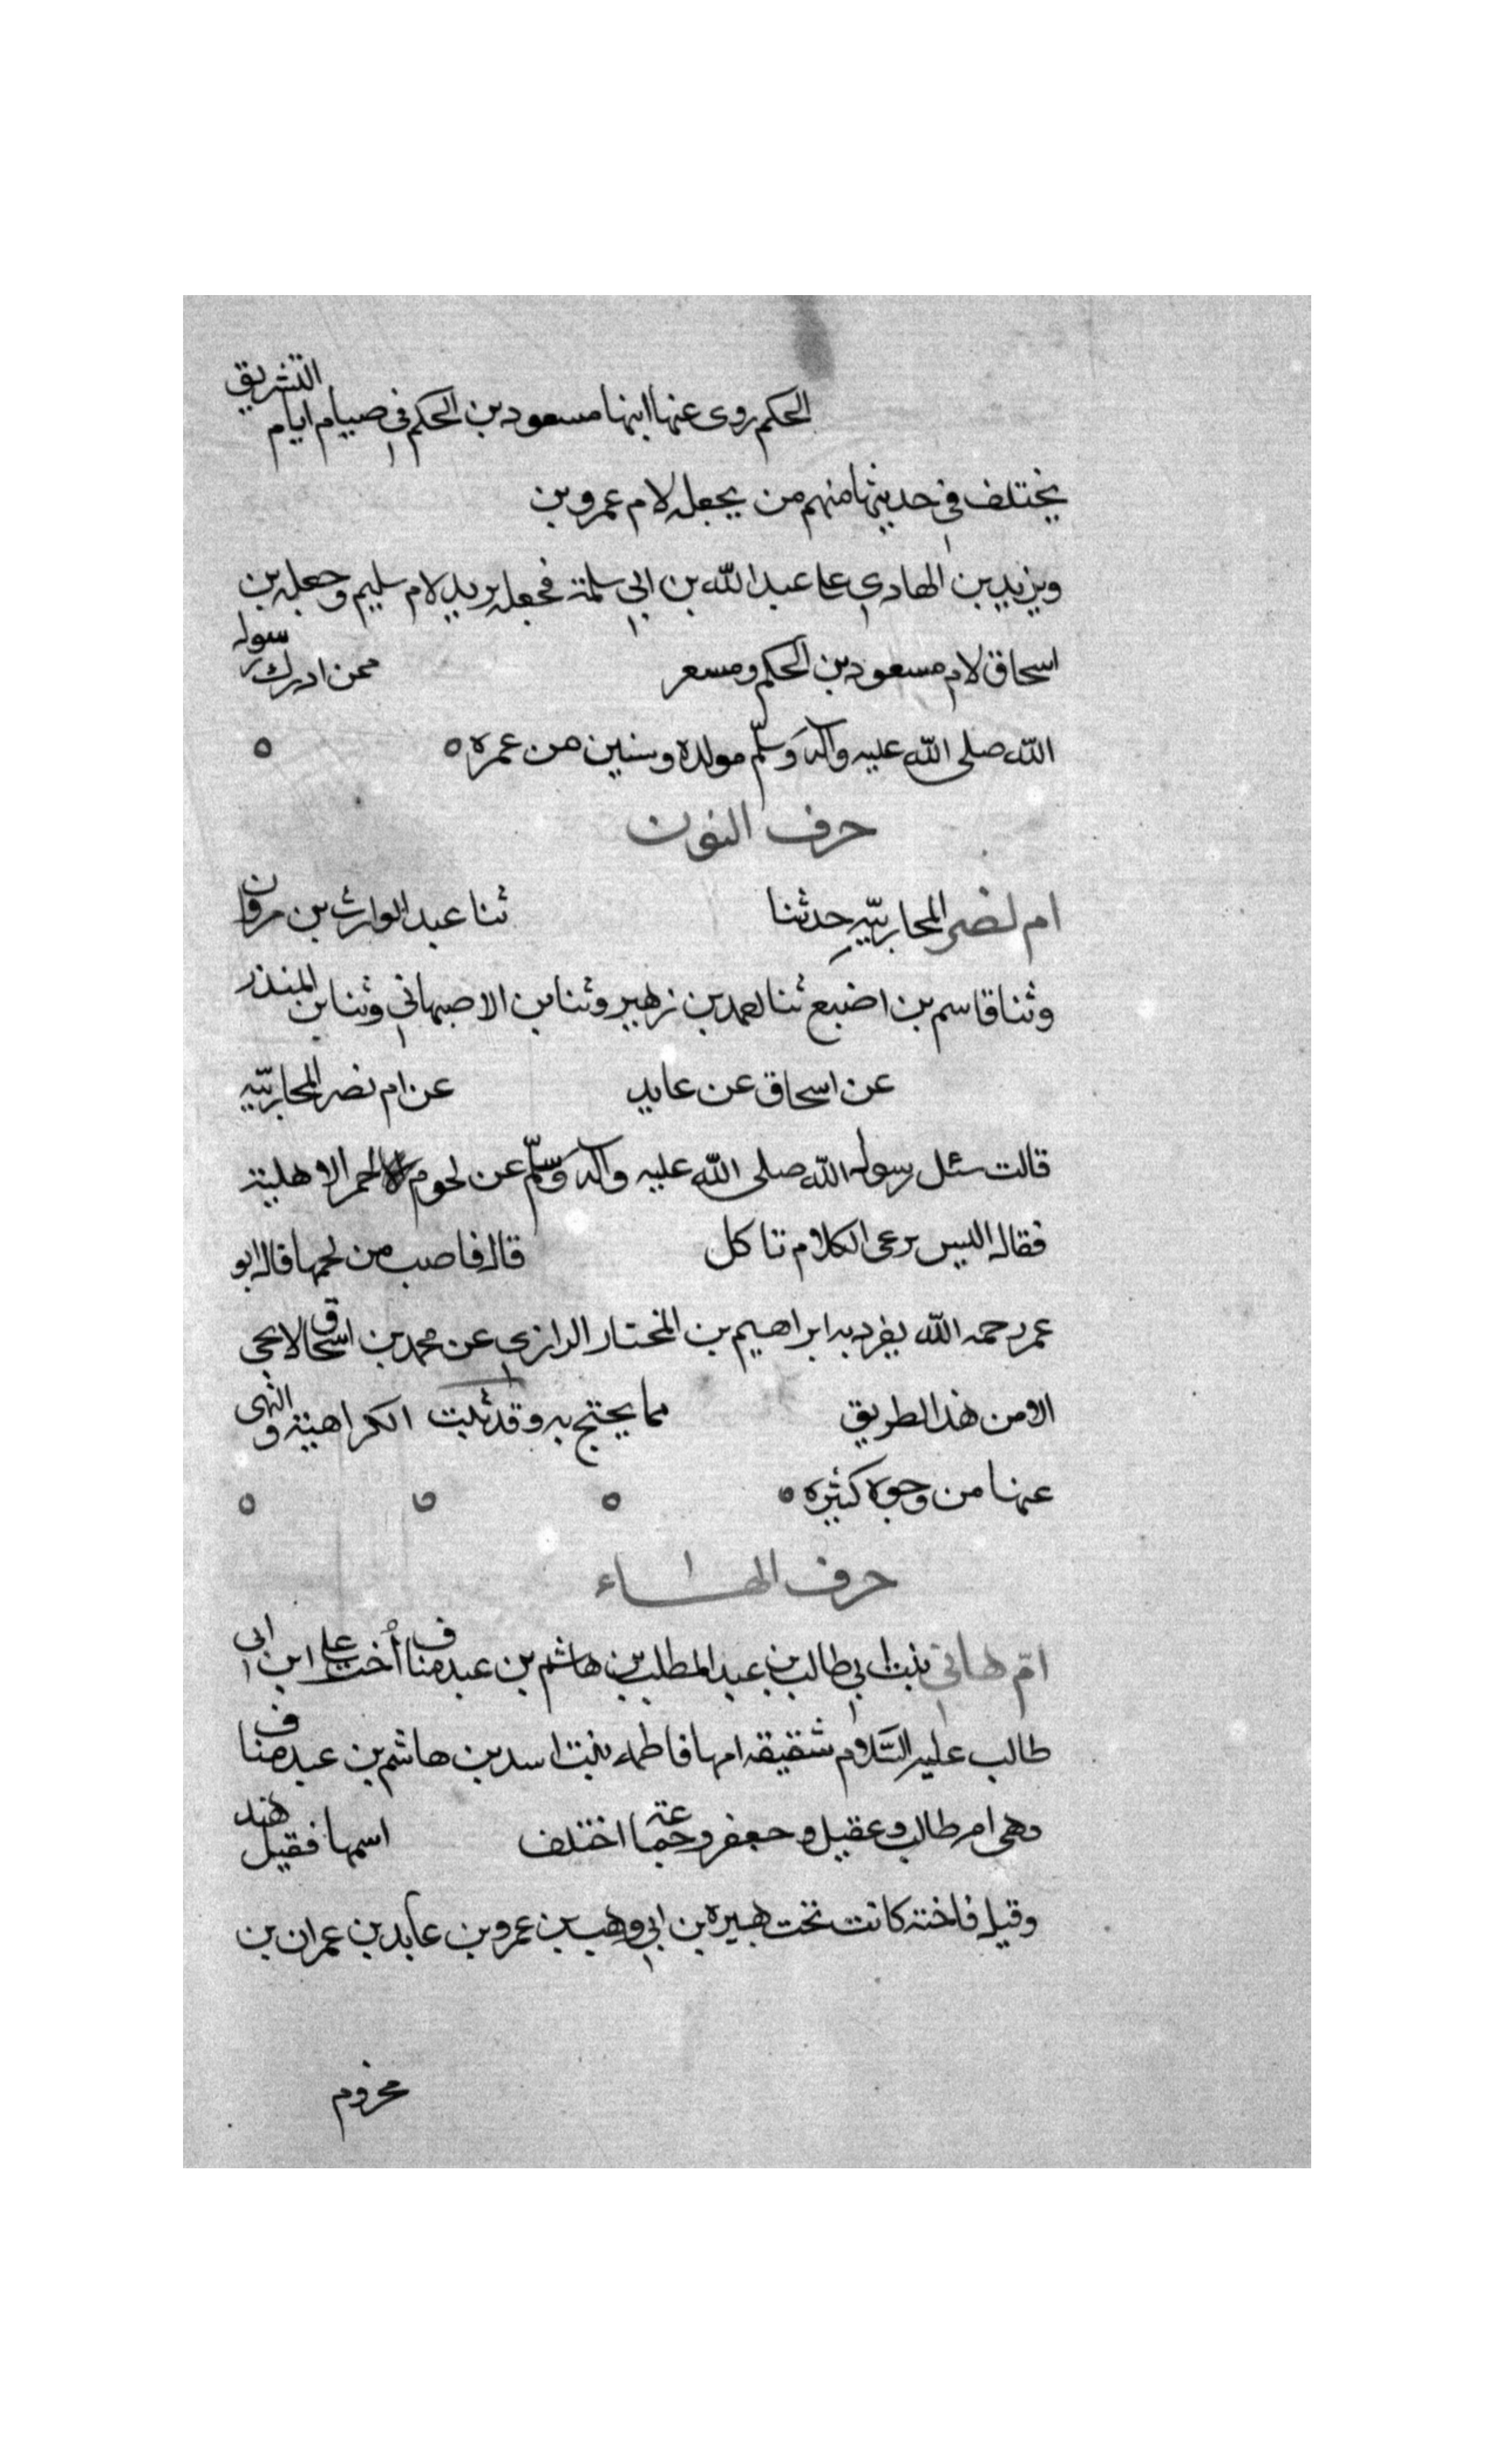 الحكم روى عنها ابنها مسعود بن الحكم في صيام ايام التشريق
يختلف في حديثها منهم من يجعله لام عمرو بن
ويزيد بن الهادي على عبد الله بن ابي سلمة فجعله يزيد لام سليم وجعله بن
اسحاق لام مسعود بن الحكم ومسعر ممن ادرك رسول
الله صلى الله عليه وآله وسلّم مولده وسنين من عمره
حرف النون
ام نصر المحاربيّه حدثنا ثنا عبد الوارث بن مروان
وثنا قاسم بن اضبع ثنا احمد بن زهير وثنا بن الاصبهاني وثنا بن المنذر
عن اسحاق عن عابد عن ام نصر المحاربيّه
قالت سئل رسول الله صلى الله عليه وآله وسلّم عن لحوم الحمر الاهلية
فقال اليس برعى الكلام تاكل قال فاصب من لحمها قال ابو
عمر رحمه الله يفرد به ابراهيم بن المختار الرازي عن محمد بن اسحاق لا يجى
الا من هذا الطريق مما يحتج به وقد ثبت الكراهية والنهى
عنها من وجوه كثيره
حرف الهاء
امّ هاني بنت ابي طالب بن عبد المطلب بن هاشم بن عبد مناف أخت على ابن ابى
طالب عليه السّلام شقيقه امها فاطمه بنت اسد بن هاشم بن عبد مناف
وهى ام طالب وعقيل وجعفر وجماعة اختلف اسمها فقيل هند
وقيل فاخته كانت تحت هبيره بن ابي وهب بن عمرو بن عابد بن عمران بن
مخزوم